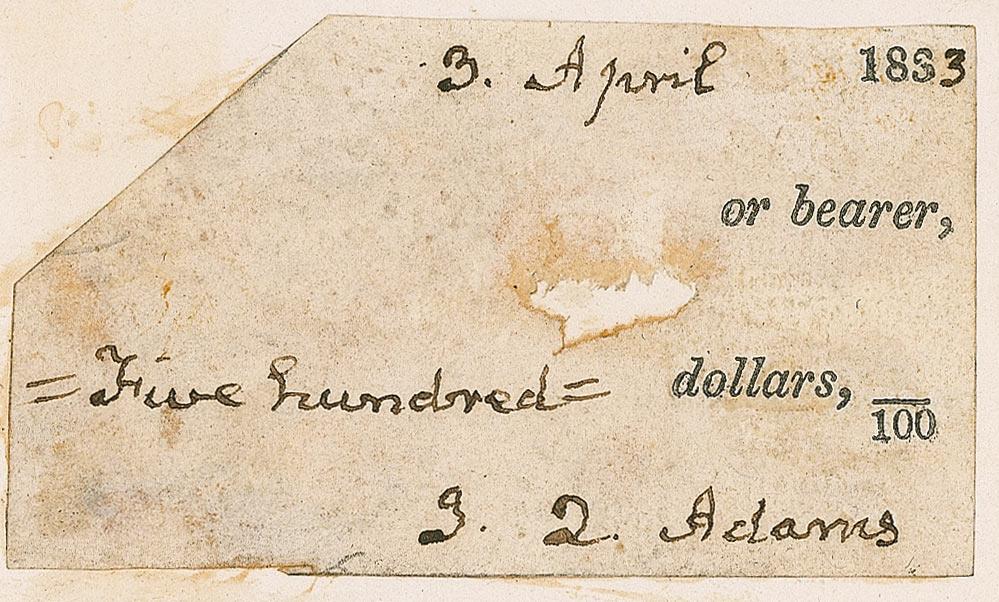 3. April 1833
or bearer,
= Five hundred = dollars, /100
J. Q. Adams